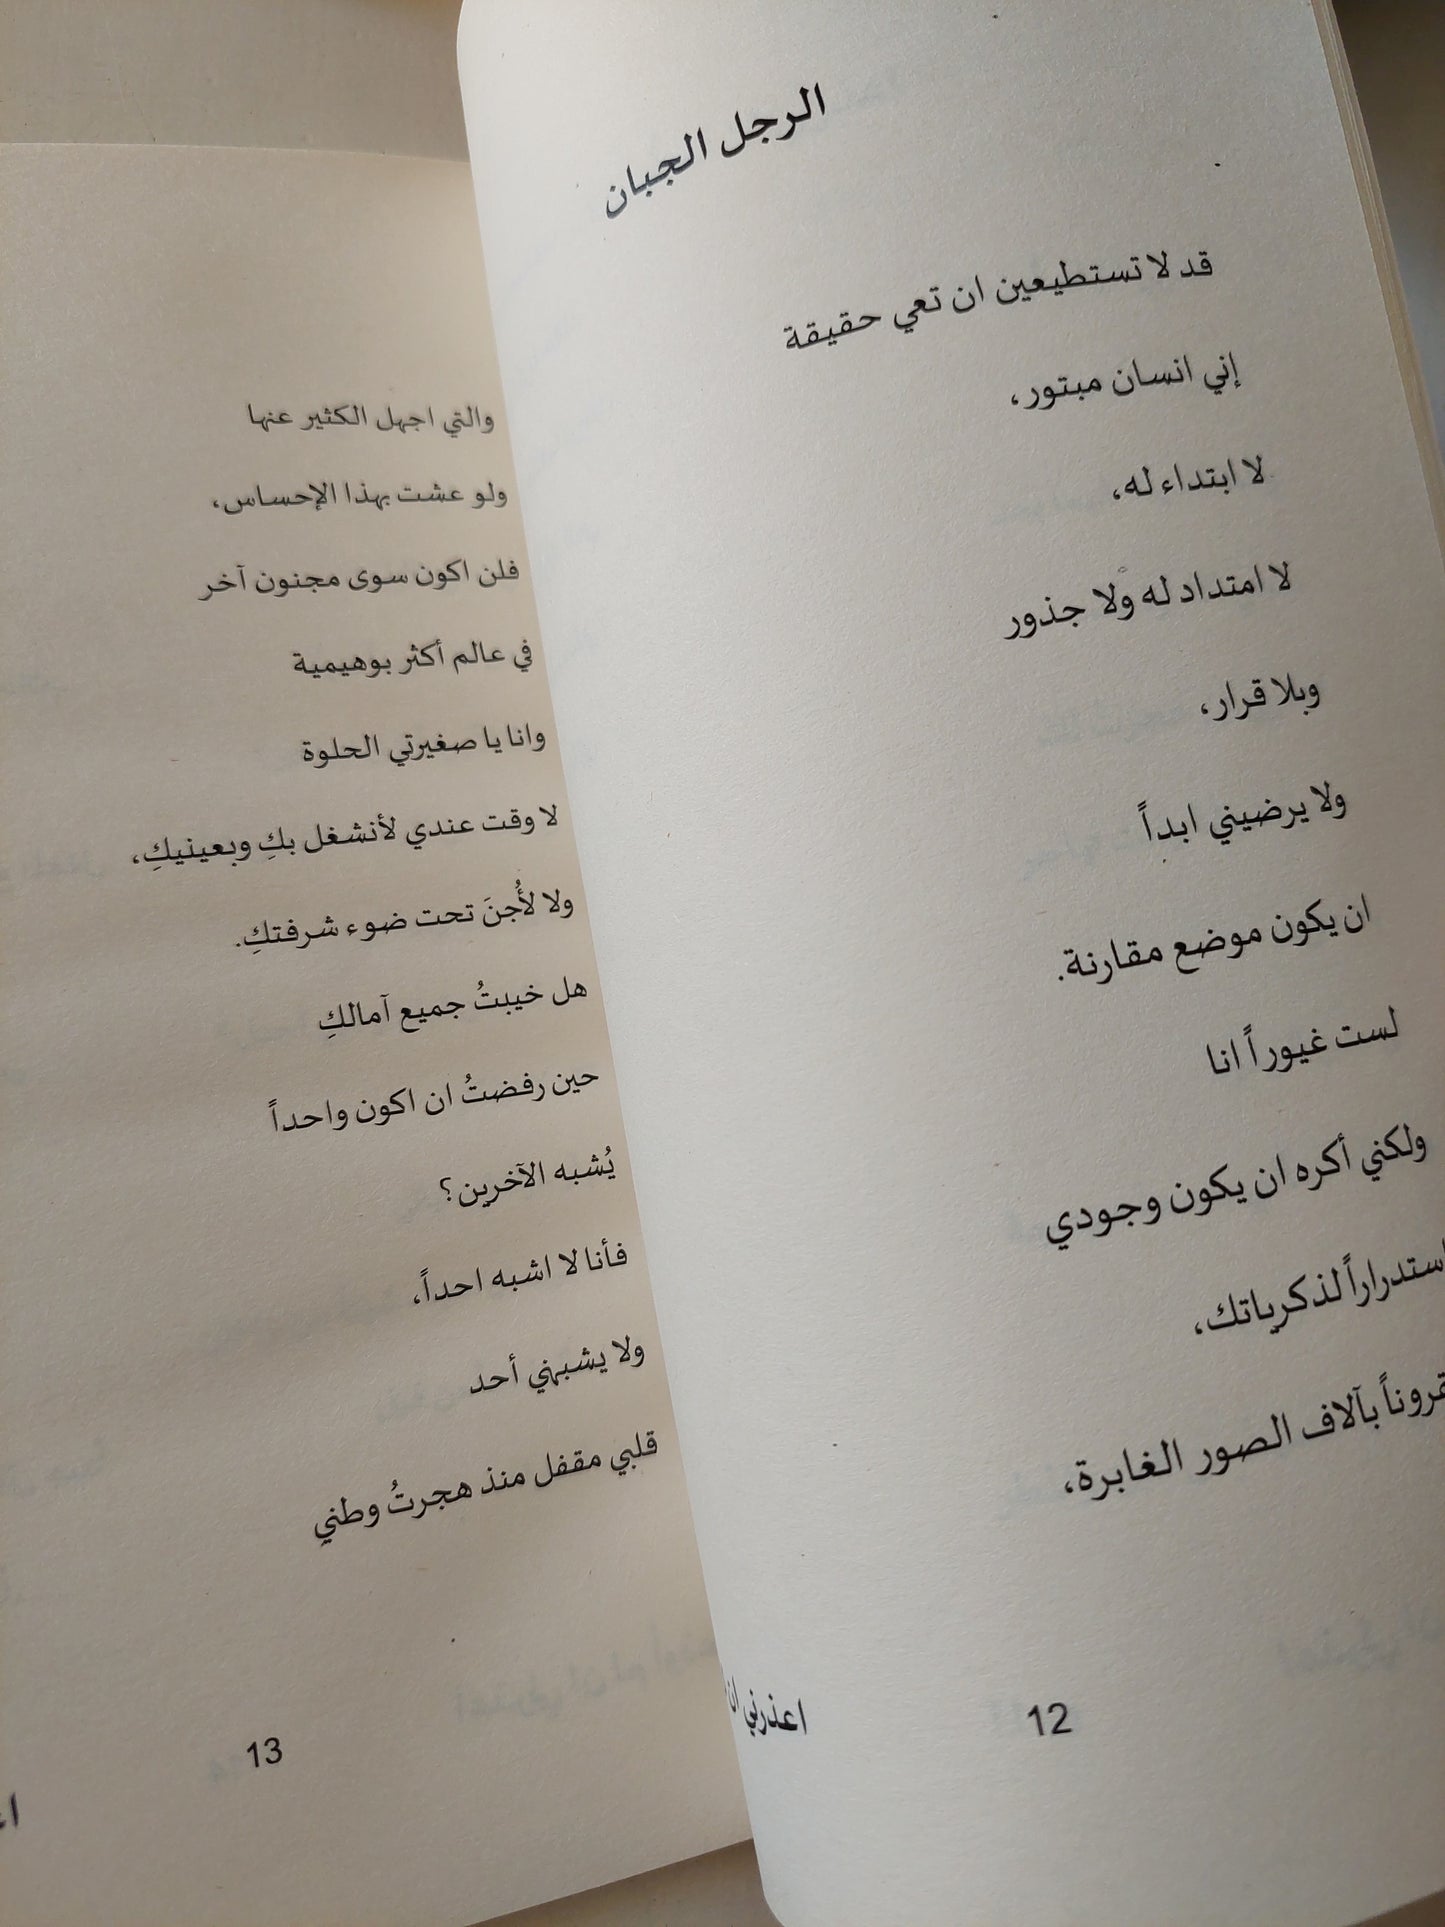 الرجل الجبان
قد لا تستطيعين ان تعي حقيقة
إني انسان مبتور،
لا ابتداء له،
لا امتداد له ولا جذور
وبلا قرار،
ولا يرضيني ابداً
ان يكون موضع مقارنة.
لست غيوراً انا
ولكني أكره ان يكون وجودي
استدراراً لذكرياتك،
بآلاف الصور الغابرة،
اعذرني ان
12
والتي اجهل الكثير عنها
ولو عشت بهذا الإحساس،
فلن اكون سوى مجنون آخر
في عالم أكثر بوهيمية
وانا يا صغيرتي الحلوة
لا وقت عندي لأنشغل بكِ وبعينيكِ،
ولا لأُجنَ تحت ضوء شرفتكِ.
هل خيبتُ جميع آمالكِ
حين رفضتُ ان اكون واحداً
يُشبه الآخرين؟
فأنا لا اشبه احداً،
ولا يشبهني أحد
قلبي مقفل منذ هجرتُ وطني
13